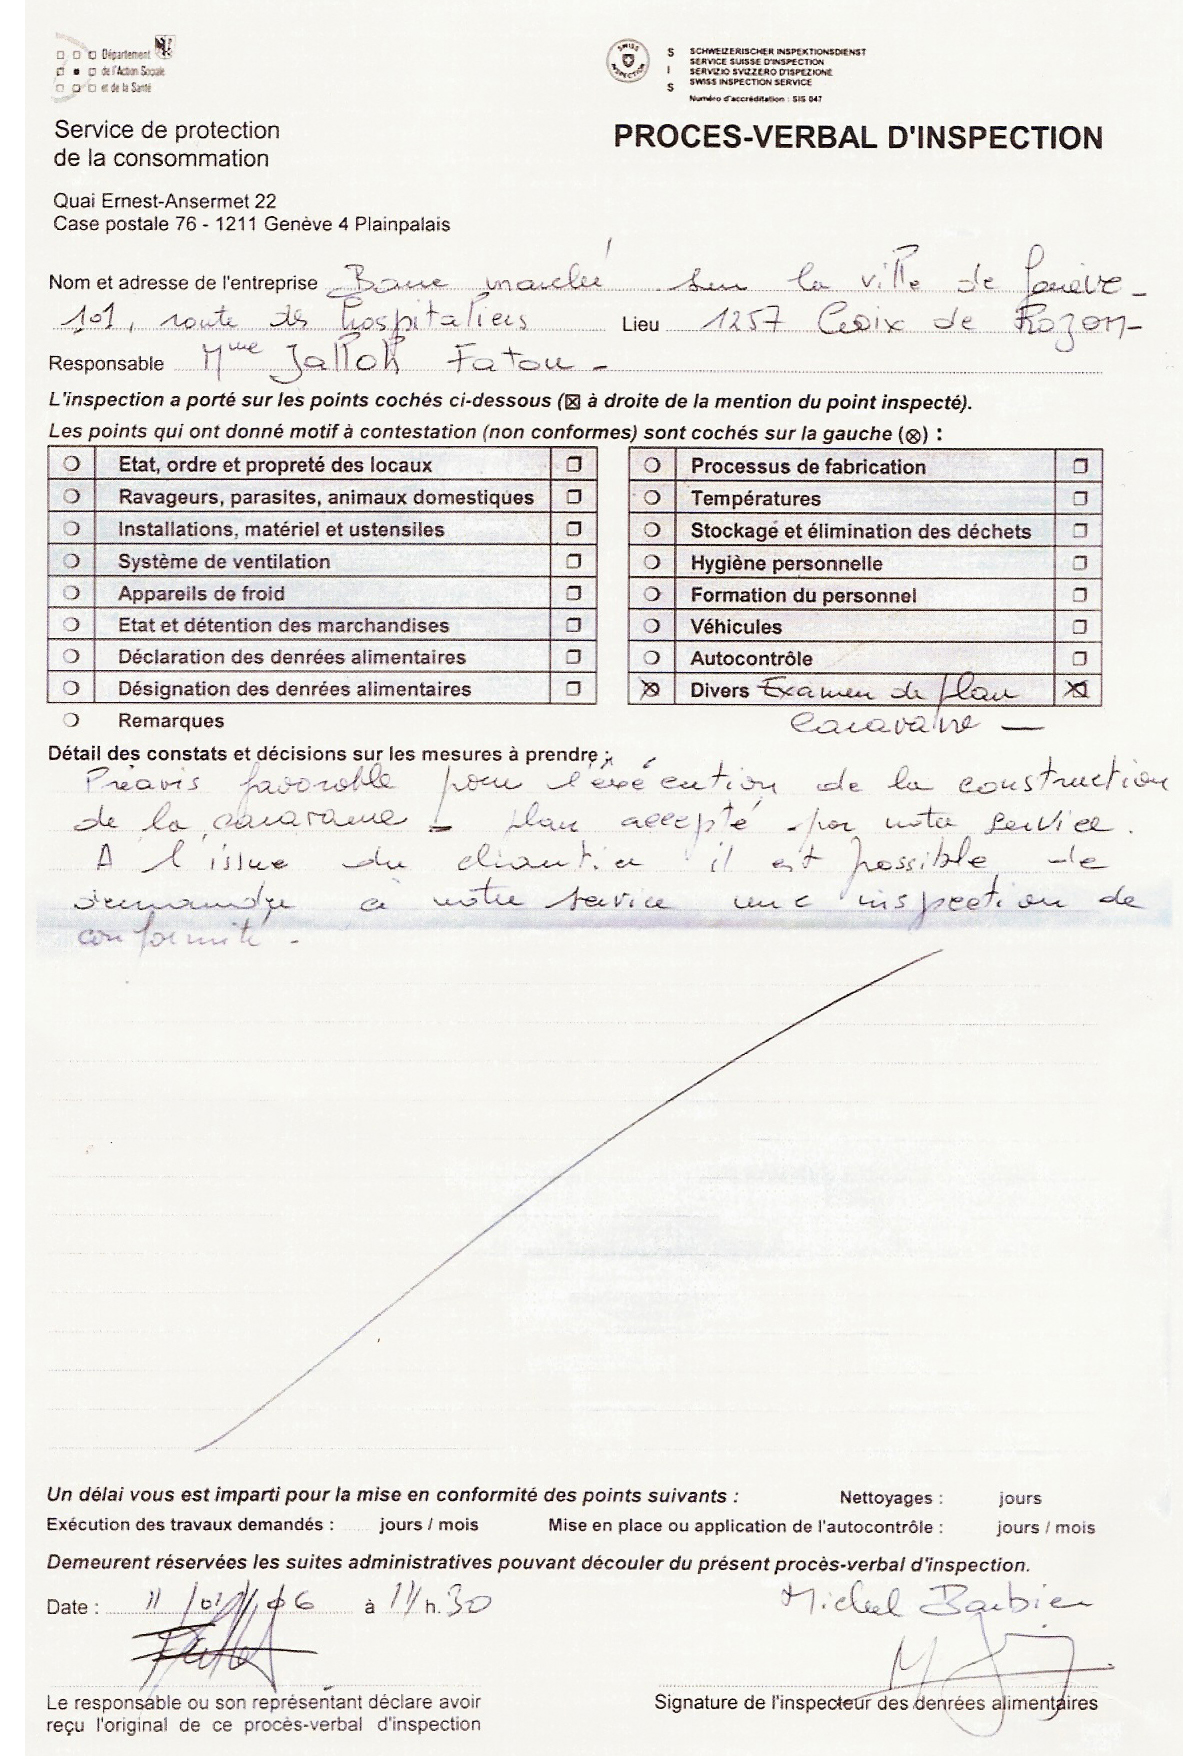 Département
de l'Action Sociale
et de la Santé
SWISS INSPECTION
S I S
SCHWEIZERISCHER INSPEKTIONSDIENST
SERVICE SUISSE D'INSPECTION
SERVIZIO SVIZZERO D'ISPEZIONE
SWISS INSPECTION SERVICE
Numéro d'accréditation : SIS 047
Service de protection
de la consommation
PROCES-VERBAL D'INSPECTION
Quai Ernest-Ansermet 22
Case postale 76 - 1211 Genève 4 Plainpalais
Nom et adresse de l'entreprise Banc marché sur la ville de Genève -
101, route des Hospitaliers Lieu 1257 Croix de Rozon -
Responsable Mme Jalloh Fatou -
L'inspection a porté sur les points cochés ci-dessous (☒ à droite de la mention du point inspecté).
Les points qui ont donné motif à contestation (non conformes) sont cochés sur la gauche (⊗) :
Etat, ordre et propreté des locaux
Ravageurs, parasites, animaux domestiques
Installations, matériel et ustensiles
Système de ventilation
Appareils de froid
Etat et détention des marchandises
Déclaration des denrées alimentaires
Désignation des denrées alimentaires
Remarques
Processus de fabrication
Températures
Stockage et élimination des déchets
Hygiène personnelle
Formation du personnel
Véhicules
Autocontrôle
Divers Examen de plan
caravane -
Détail des constats et décisions sur les mesures à prendre :
Préavis favorable pour l'exécution de la construction
de la caravane - plan accepté par notre service.
A l'issue du chantier il est possible de
demander à notre service une inspection de
conformité -
Un délai vous est imparti pour la mise en conformité des points suivants : Nettoyages : jours
Exécution des travaux demandés : jours / mois Mise en place ou application de l'autocontrôle : jours / mois
Demeurent réservées les suites administratives pouvant découler du présent procès-verbal d'inspection.
Date : 11/01/06 à 11 h. 30
Michel Barbier
Le responsable ou son représentant déclare avoir
reçu l'original de ce procès-verbal d'inspection
Signature de l'inspecteur des denrées alimentaires